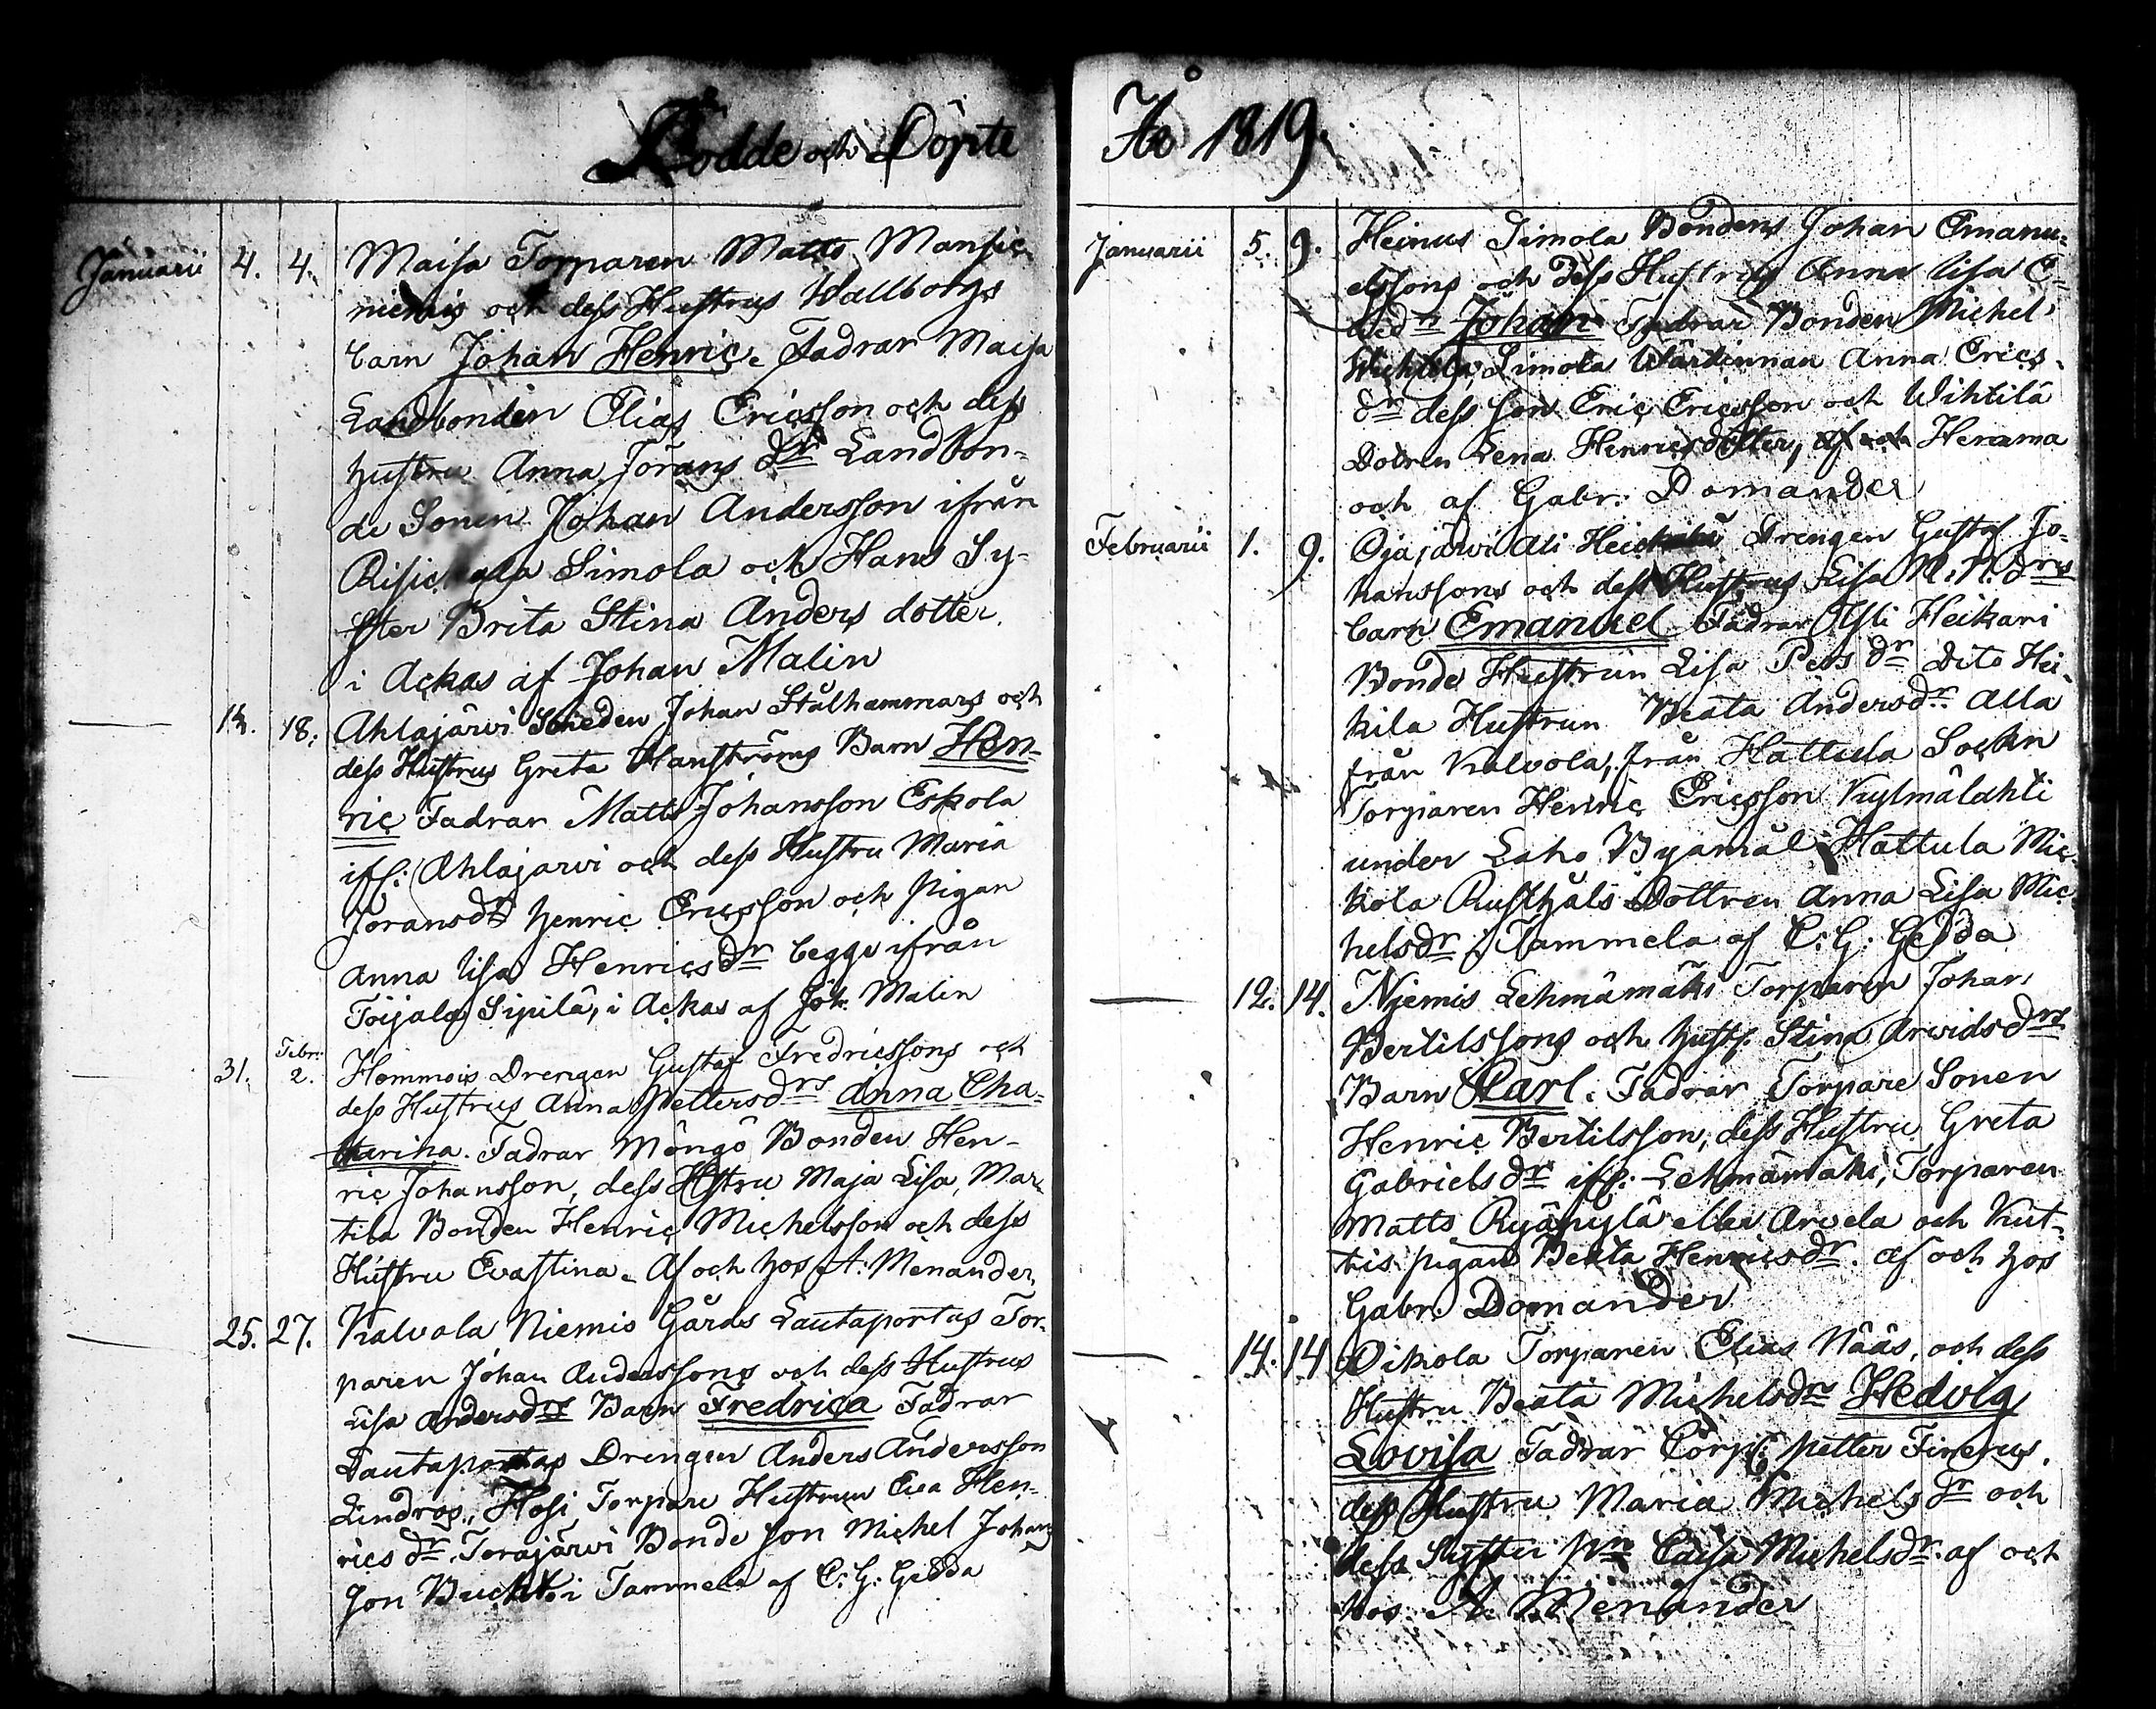 Födde och Döpte
Januarii 4. 4. Maisa Torparen Matts Mansic
niemis och dess Hustrus Wallborgs
barn Johan Henric. Fadrar Maisa
Landbonden Elias Ericsson och dess
hustru Anna Jörans dr Landbon-
de Sonen Johan Andersson ifrån
Simola och Hans Sy-
ster Brita Stina Anders dotter.
i Ackas af Johan Malin
18. Ahlajärvi Smeden Johan Stålhammars och
dess Hustrus Greta Barn Hen-
ric Fadrar Matts Johansson Eskola
Ahlajarvi och dess Hustru Maria
Joransdr henric Ericsson och pigan
Anna lisa Henricsdr begge ifrån
Toijala Sipilä, i Ackas af Joh. Malin
31. Febr. 2. Hommois Drengen Gustaf Fredricssons och
dess Hustrus Anna Pettersdrs Anna Cha-
tharina. Fadrar Möngö Bonden Hen-
ric Johansson, dess Hstru Maja Lisa, Mar-
tila Bonden Henric Michelsson och dess
Hustru Evastina. Af och hos A. Menander,
25. 27. Kalvola Niemis Gårds Lautaportas Tor-
paren Johan Anderssons och dess Hustrus
Lisa Andersdrs Barn Fredrica Fadrar
Lautaportas Drengen Anders Andersson
Lindros, Hosi Torpare Hustrun Eva Hen-
rics dr. Torajärvi Bonde son Michel Johans
son i Tammela af C. G. Gedda
Åo 1819.
Januarii 5. 9. Heinus Simola Bondens Johan Emanu-
elssons och dess Hustrus Anna lisa
Johan Fadrar Bonden Michel
Simola Wärdinnan Anna Erics-
dr dess son Eric Ericsson och Wihtilä
Dotren Lena Henricsdotter, Henama
och af Gabr. Domander
Februarii 1. 9. Ojajärvi Ali Drengen Gustaf Jo-
hanssons och dess Hustrus Lisa N. N. drs
barn Emanuel Fadrar Heikari
Bonde Hustrun Lisa Pers dr Dito Hei-
kila Hustrun Beata Andersdr alla
från Kalvola, från Hattula Sockn
Torparen Henric Ericsson Kylmälahti
under Laho Byamål Hattula Mic-
kola Rusthåls Dottren Anna Lisa Mic-
helsdr i Tammela af C. G. Gedda
12. 14. Niemis Lehmämäki Torparen Johan
Bertilssons och hust. Stina Arvidsdrs
Barn Carl. Fadrar Torpare Sonen
Henric Bertilsson, dess Hustru Greta
Gabrielsdr Lehmämäki, Torparen
Matts Ryäpylä eller Arvela och Kut-
tis pigan Beata Henricsdr. af och hos
Gabr. Domander
14. 14 Oikola Torparen Elias Nääs, och dess
Hustru Beata Michelsdrs Hedvig
Lovisa Fadrar Corp: petter
dess Hustru Maria Michels dr och
dess Syster Caisa Michelsdr. af och
hos A. Menander